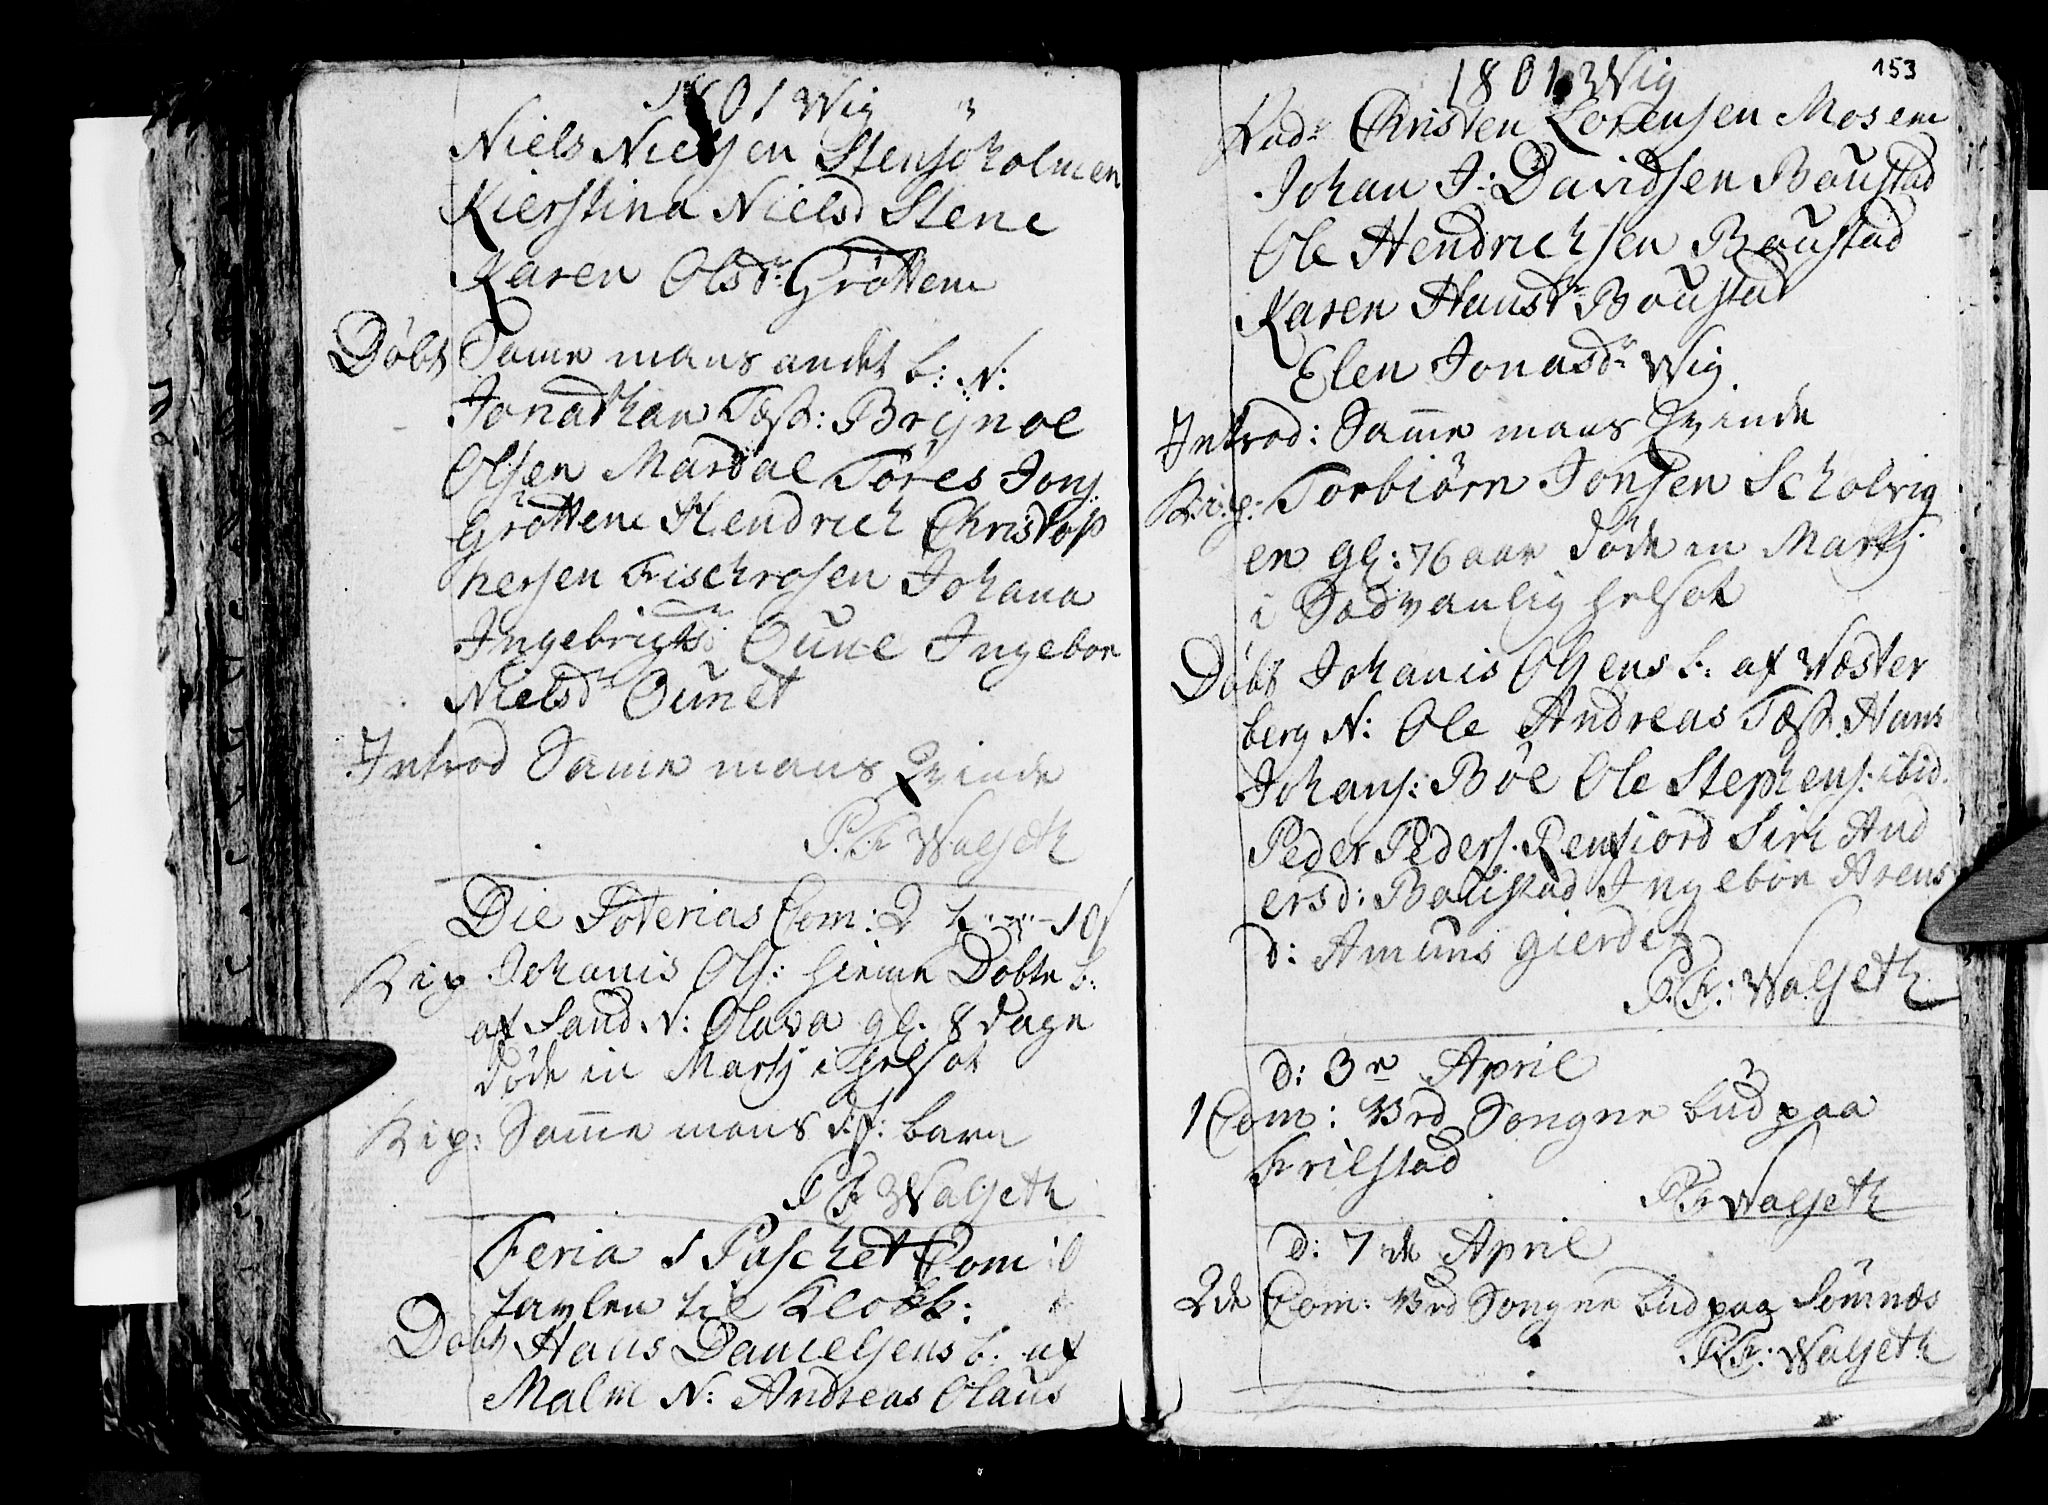 1801 Wig
Niels Nielsen Stensöholmen
Kierstina Nielsd Stene
Karen Olsdr Gröttene
Döbt Same mans andet b: N:
Jonathan Test: Brÿnel
Olsen Mardal Töres Jons:
Gröttene Hendrich Christop
hersen Fischrosen Johana
Ingebrigtsd: Oune Ingebor
Nielsdr Ounet
Introd Same mans Qvinde
P: Fr Walseth
Die Soterias Com: 2
Rip Johanis Ols: hieme Döbte b:
af Sand N: Olava gl. 8 dage
döde in Martj i helsot
Rip: Samme mans d.f: barn
P Fr Walseth
Feria 1 Paschet Com
tavlen til Klokk:
Döbt Hans Danielsens b. af
Malm N: Andreas Olaus
153
1801 Wig
Fad: Christen Lorensen Mosene
Johan J: Davidsen Boustad
Ole Hendrichsen Boustad
Karen Hansdr Boustad
Elen Jonasdr Wig
Introd: Samme mans Qvinde
Rip: Torbiörn Jonsen Scholvig
en gl: 76 aar döde in Martj
i Sædvanlig helsot
Döbt Johanis Olsens b: af Wæster
berg N: Ole Andreas Test. Hans
Johans: Böe Ole Stephens: ibid.
Peder Peders. Renfiord Siri And
ersd: Boustad Ingebor Arens
d: Amuns gierdet
P. Fr: Walseth
d: 3 April
1 Com: ved Songne bud paa
Frilstad
P. Fr Walseth
d: 7de April
2de Com: ved Songne bud paa Sömnæs
P. Fr: Walseth